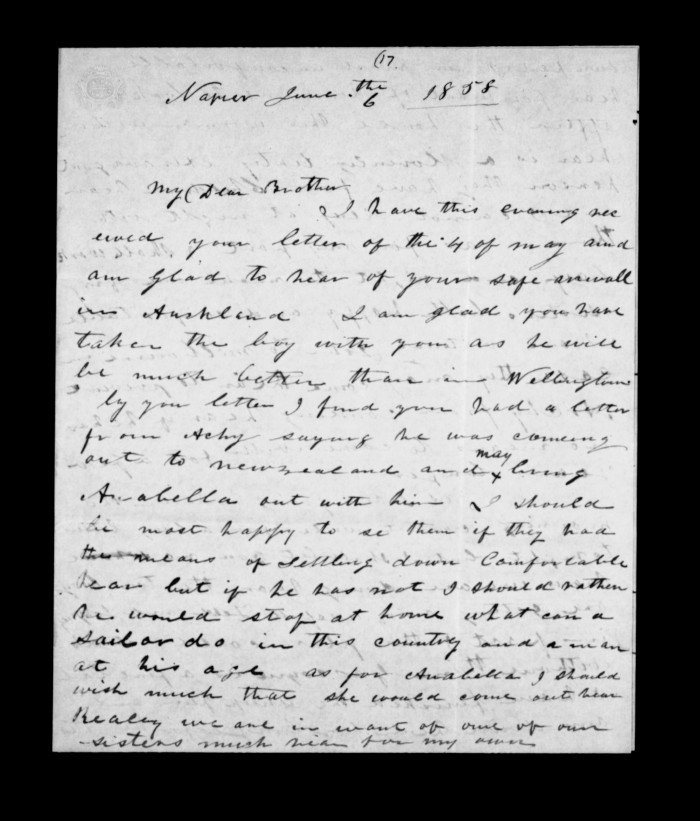 (17
Napier June the 6 1858
My Dear Brother
I have this evening rec
eived your letter of the 4 of may and
am glad to hear of your safe arivall
in Auckland I am glad you have
taken the boy with you as he will
be much better than in Wellington
by you letter I find you had a letter
from Achy saying he was comeing
out to newzealand and may bring
Anabella out with him I should
be most happy to se them if they had
the means of Settling down Comfortable
hear but if he has not I should rather
he would stop at home what can a
Sailor do in this country and a man
at his age as for Anabella I should
wish much that she would come out hear
Realey we are in want of one of our
sisters much hear for my own